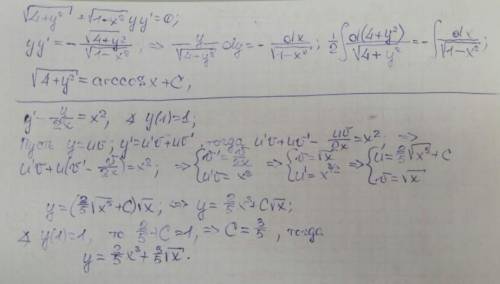 √4+y² + √1-x² yy' = 0;
yy' = - √4+y² / √1-x², ⇒ y/√4-y² dy = - dx/√1-x²; 1/2 ∫ d(4+y²)/√4+y² = - ∫ dx/√1-x²;
√4+y² = arccos x + C,
y' - y/2x = x², y(1)=1;
Пусть y=uv; y'=u'v+uv', тогда u'v+uv' - uv/2x = x² ⇒
u'v+u(v' - v/2x) = x²; ⇒ { v' = v/2x u'v = x² ⇒ { v=√x u' = x^3/2 ⇒ { u = 2/5 √x⁵ + C v=√x
y = (2/5 √x⁵ + C)√x; ⇒ y = 2/5 x³ + C√x;
y(1)=1, то 2/5 + C = 1, ⇒ C = 3/5, тогда
y = 2/5 x³ + 3/5 √x.